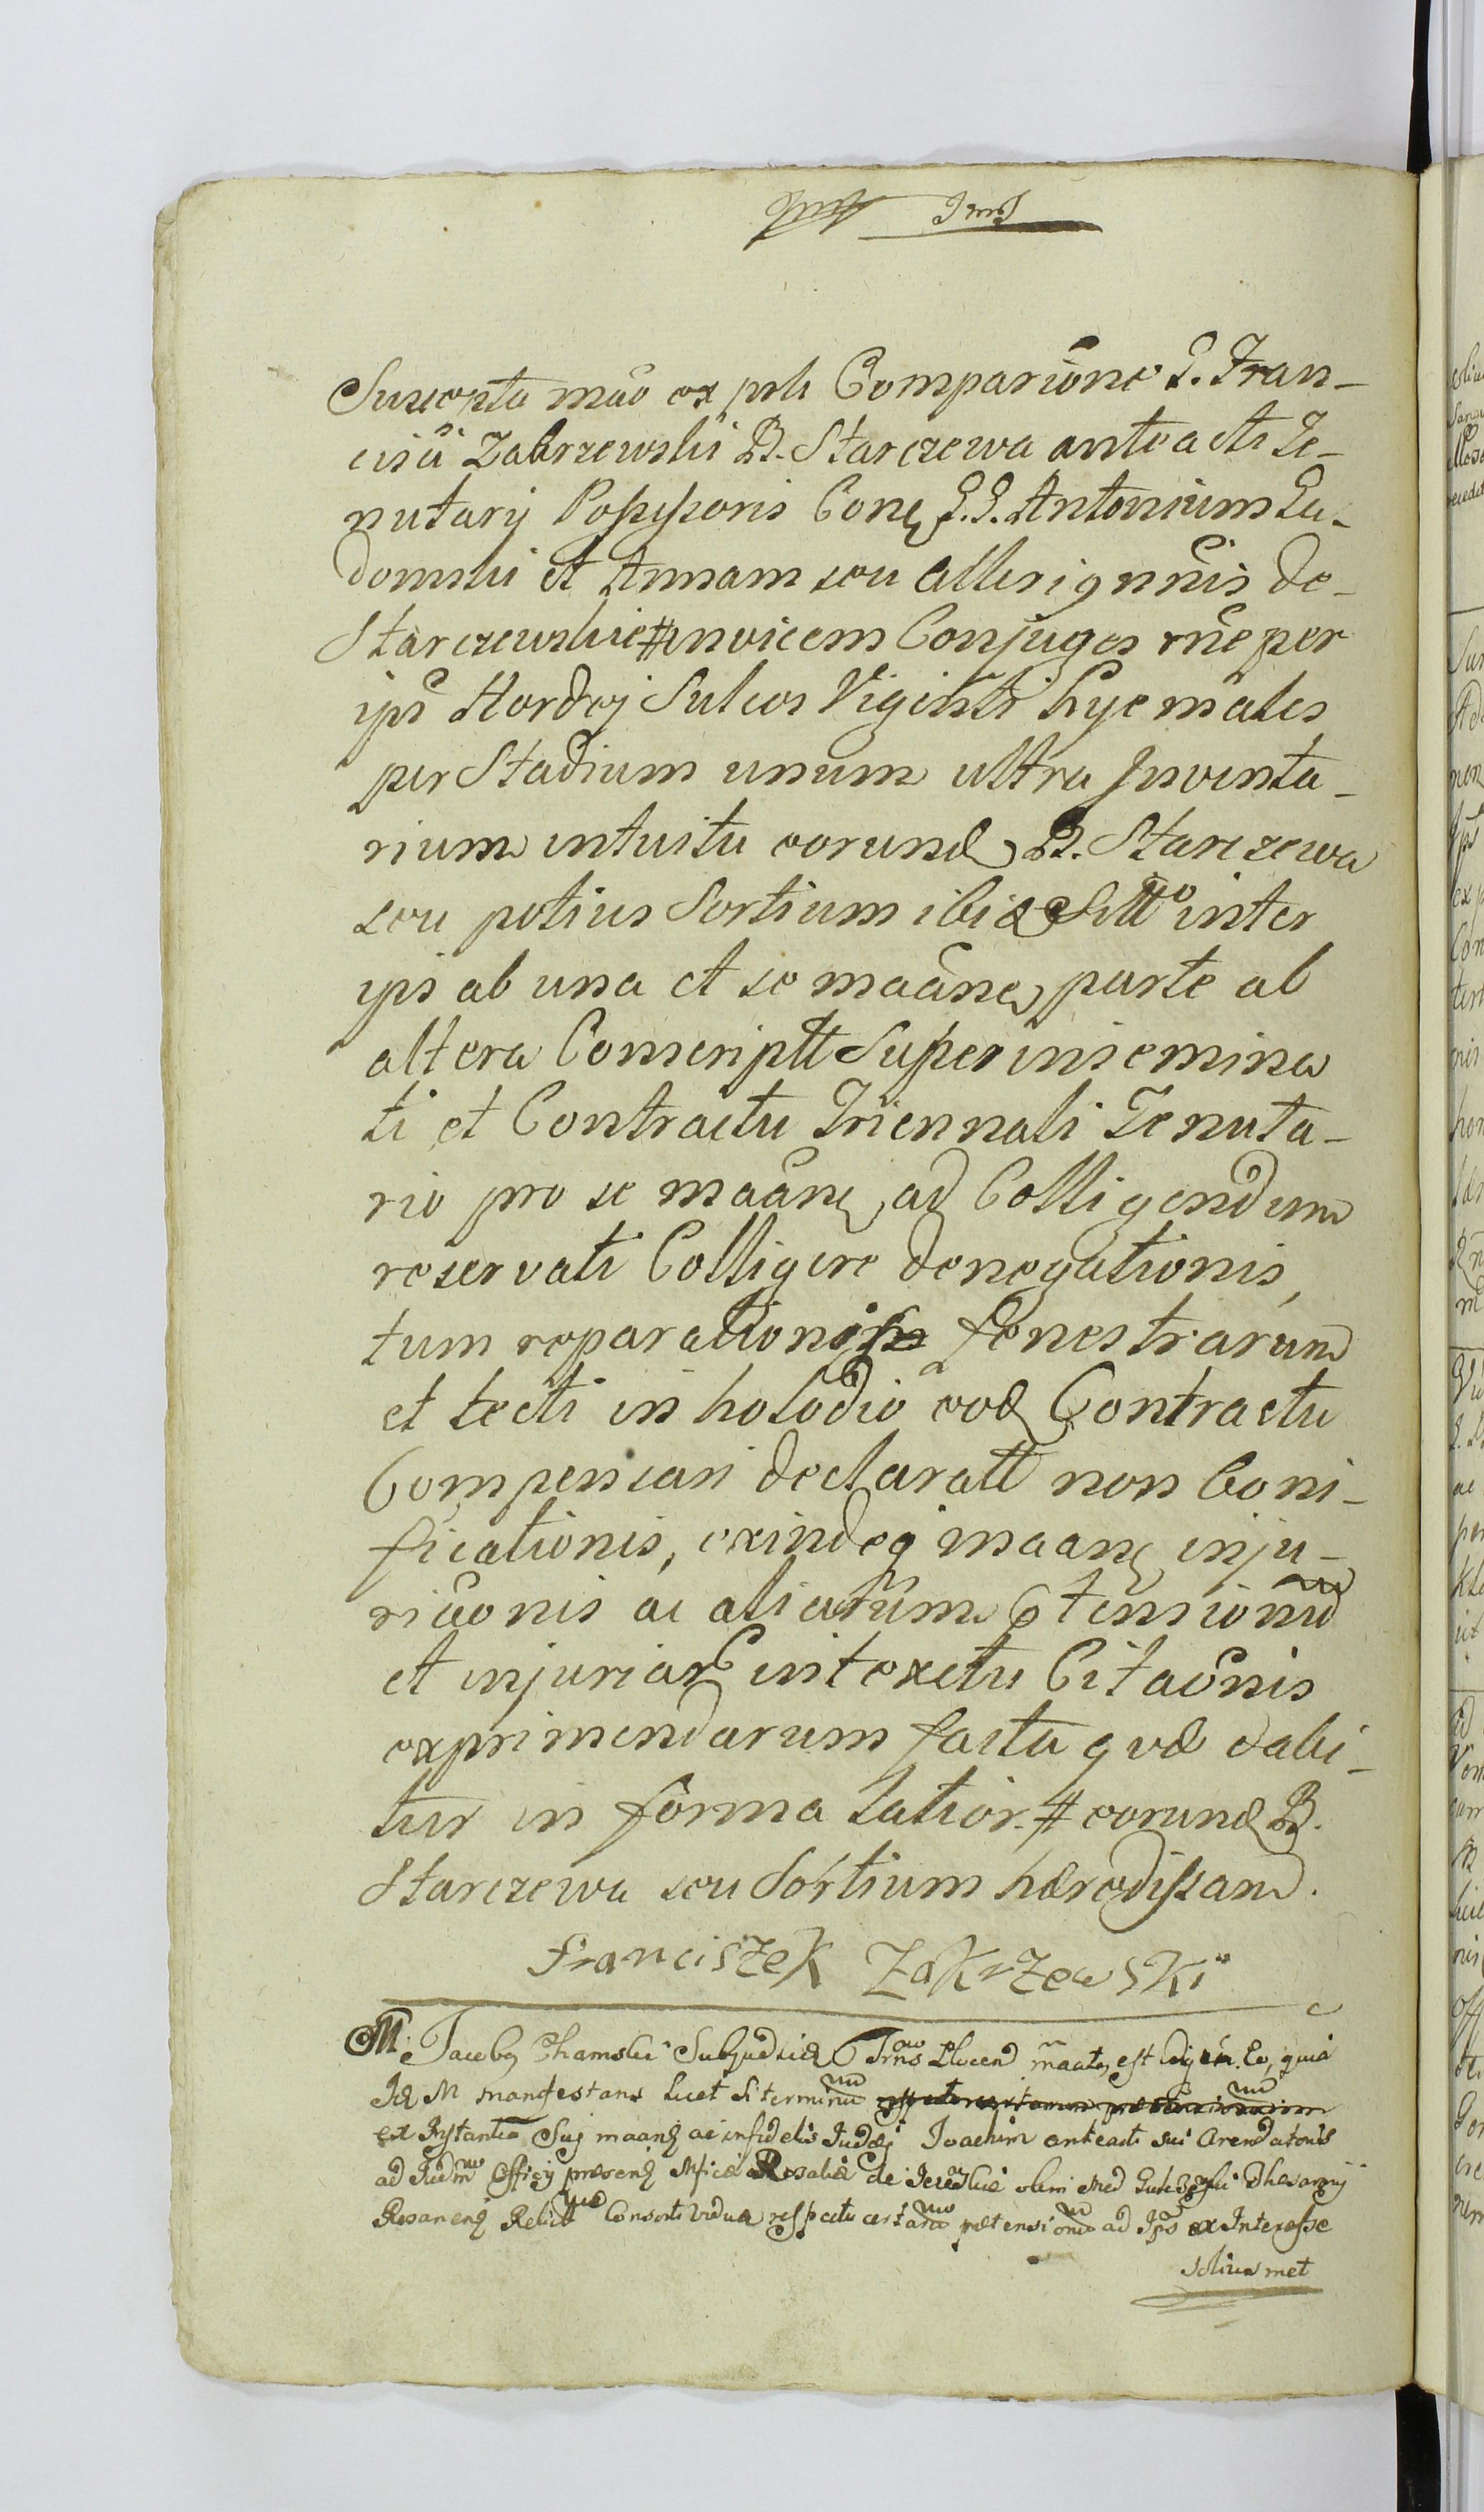 Suscepta mão ex prli Comparitione G. Fran-
cisci Zabrzewski B. Starczewa anteacti Te-
nutarij Possessoris Conq G.G. Antonium Lu-
domski et Annam seu alleri gnnis de
Starczewskie # invicem Conjuges rne per
ips Hordej Sulcos Viginti hyemales
per Stadium unum ultra Inventa-
rium intuitu eorund B. Starczewa
seu potius Sortium ibid Sitt inter
ips ab una et se maane parte ab
altera Conscriptt Superinsemina
ti et Contractu Triennali Tenuta-
rio pro se maane ad Colligendum
reservati Colligere denegationis,
tum reparationis fenestrarum
et tecti in holodio eod Contractu
Compensari declaratt non boni-
ficationis, exindeq maane inju-
riaonis ac aliarum Ptensionu
et injuriar in texetu Citaonis
exprimendarum facta qvæ dabi-
tur in forma latior. # eorund B.
Starczewa seu Sortium hærodissam.
Franciszek Zakrzewski
M. Jacobg Chamski Subjudicid Trns Plocend maatg est Ideo, quia
Id M manifestans licet Si terminu
ex Instantia Sui maane ac infidelis Judæj Joachim anteacti sui Arendatoris
ad Judm Officij præsens Mficæ Rosaliæ de olim
Rosanens Relictt Consorti Viduæ respectu certaru prætensionu ad Ips ex Interesse
soliusmet